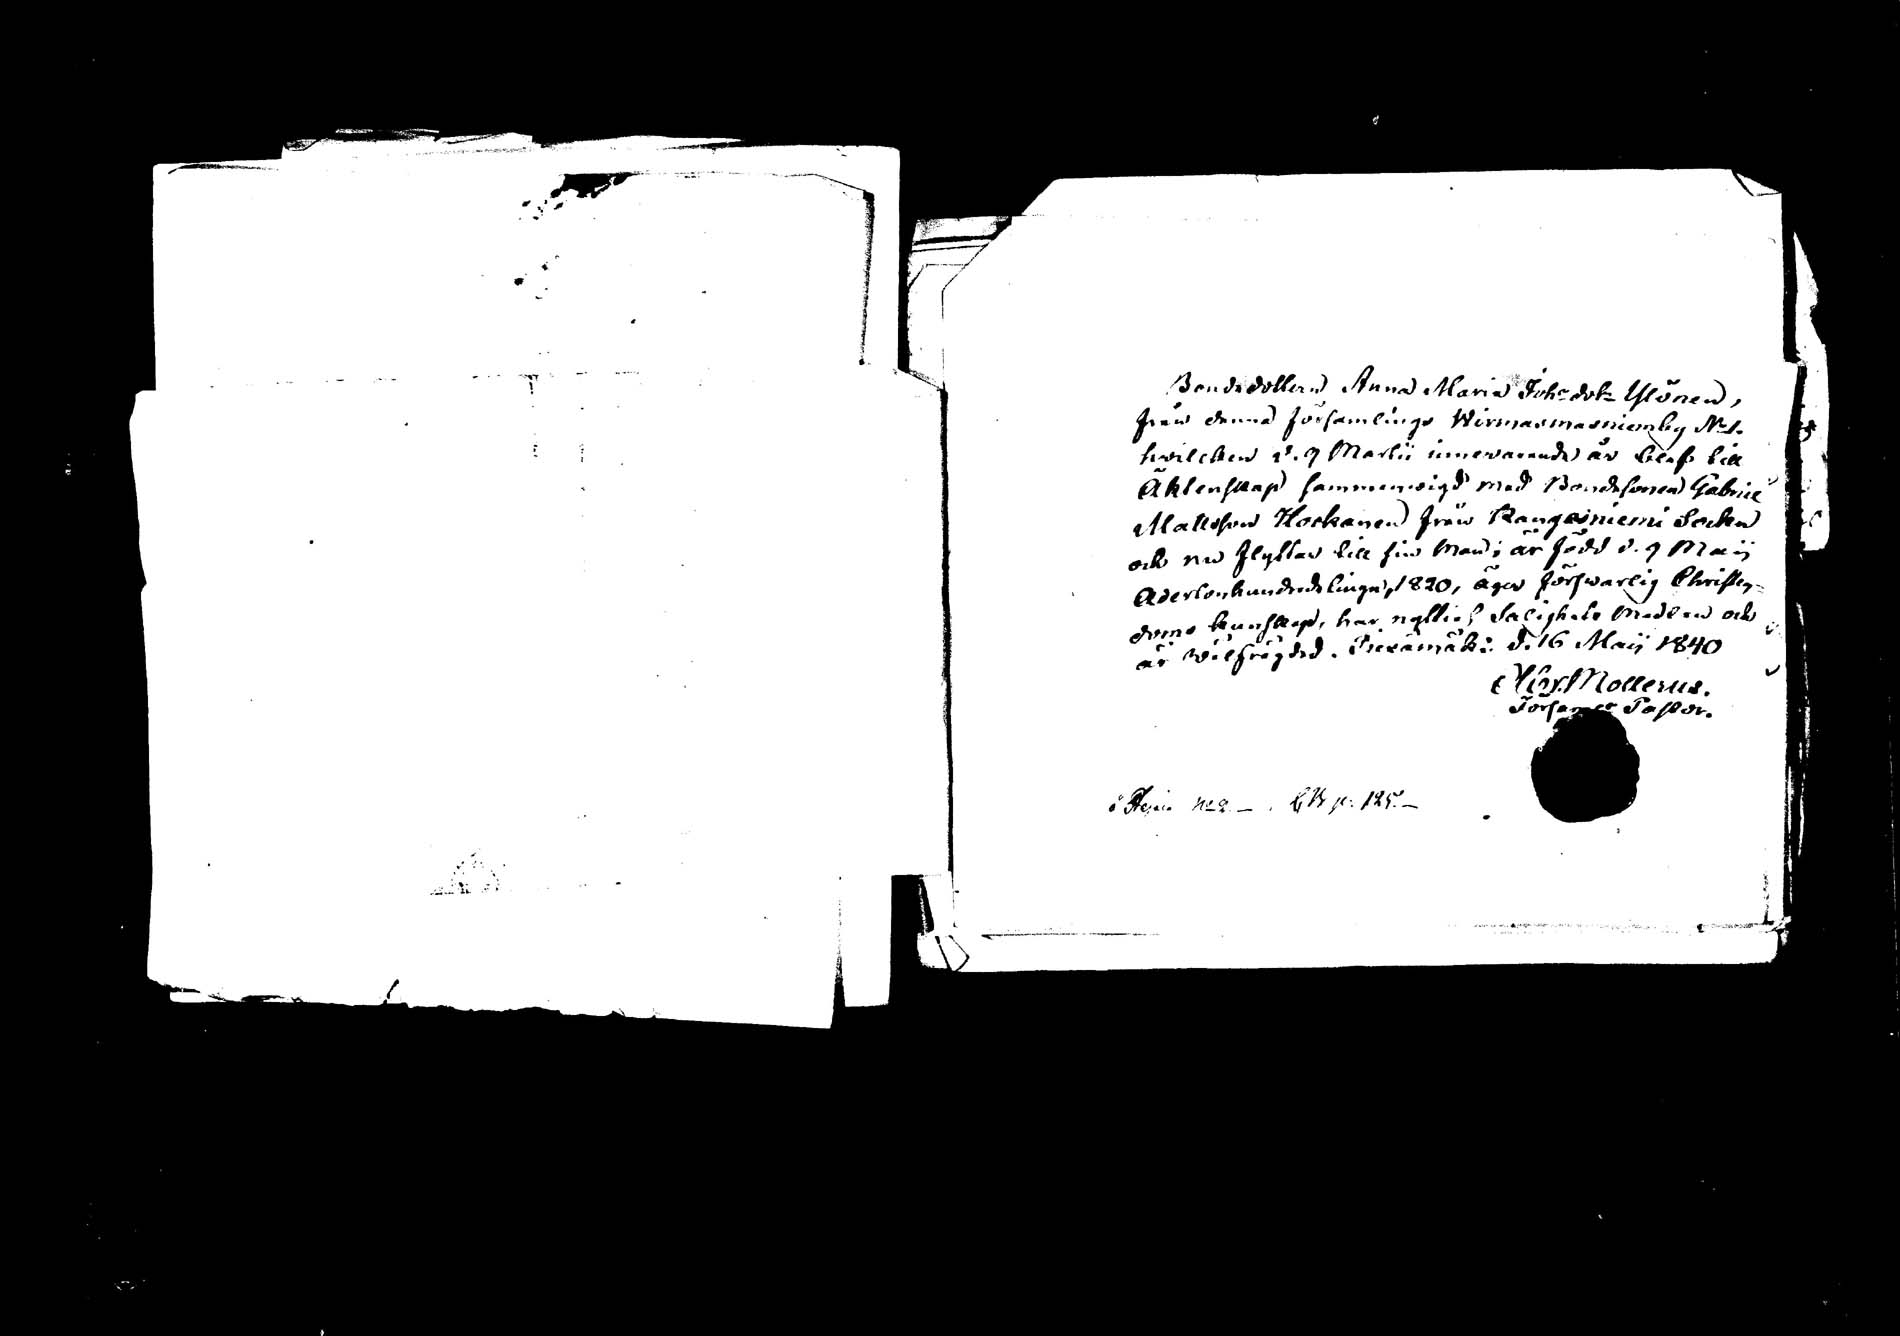 Bondedottern Anna Maria Johsdotr Ylönen,
från denna församlings Wirmasmasniemby No 1.
hvilcken d. 9 Martii innevarande år blef till
Äktenskap sammanwigd med Bondesonen Gabriel
Mattsson Hockanen från Kangasniemi Socken
och nu flyttar till sin Man; är född d. 9 Maij
Adertonhundradetjugu, 1820, äger försvarlig Christen-
doms kunskap, har nyttjat Salighets Medlen och
är wälfrägdad. Piexämäki d. 16 Maij 1840
Mollerus.
Församls Pastor.
No 2 — . CB p. 125. —